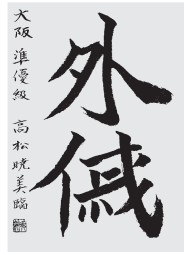 外
大阪 準優級 高松暁美臨